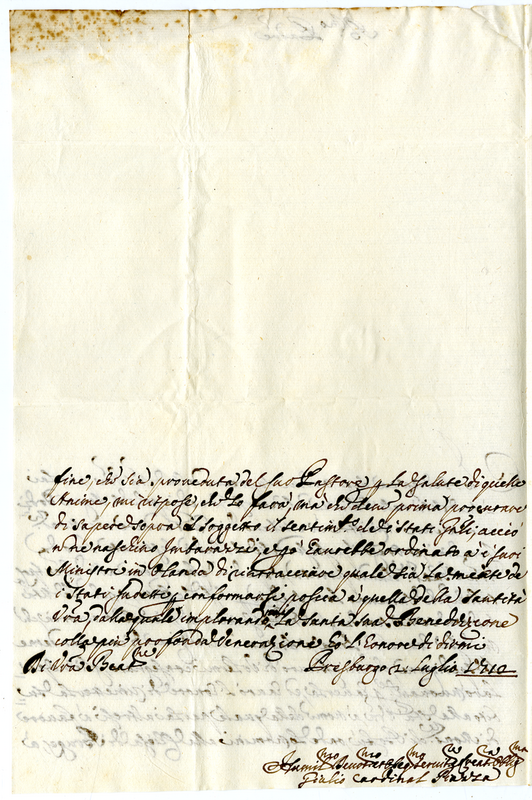 fine, che sia proveduta del suo Pastore p la salute di quelle
Anime, mi rispose, che lo farà, ma che devo prima procurare
di sapere sopra il soggetto il sentim.to de Stati Gnli, acciò
non ne naschino Imbarazzi, e p ciò haurebbe ordinato a i suoi
Ministri in Olanda di rintracciare quale sia la mente de
i Stati sudetti p conformarse poscia a quella della Santità
Vra dalla quale implorando la Santa Sua Benedizzione
colla più profonda Venerazione ho l'Honore di dirmi
Di Vra Beat.ne
Presburgo 2. Luglio 1710
Humil.mo Devot.mo et Oblig.mo Servit.re Creat.ra
Giulio Cardinal Piazza